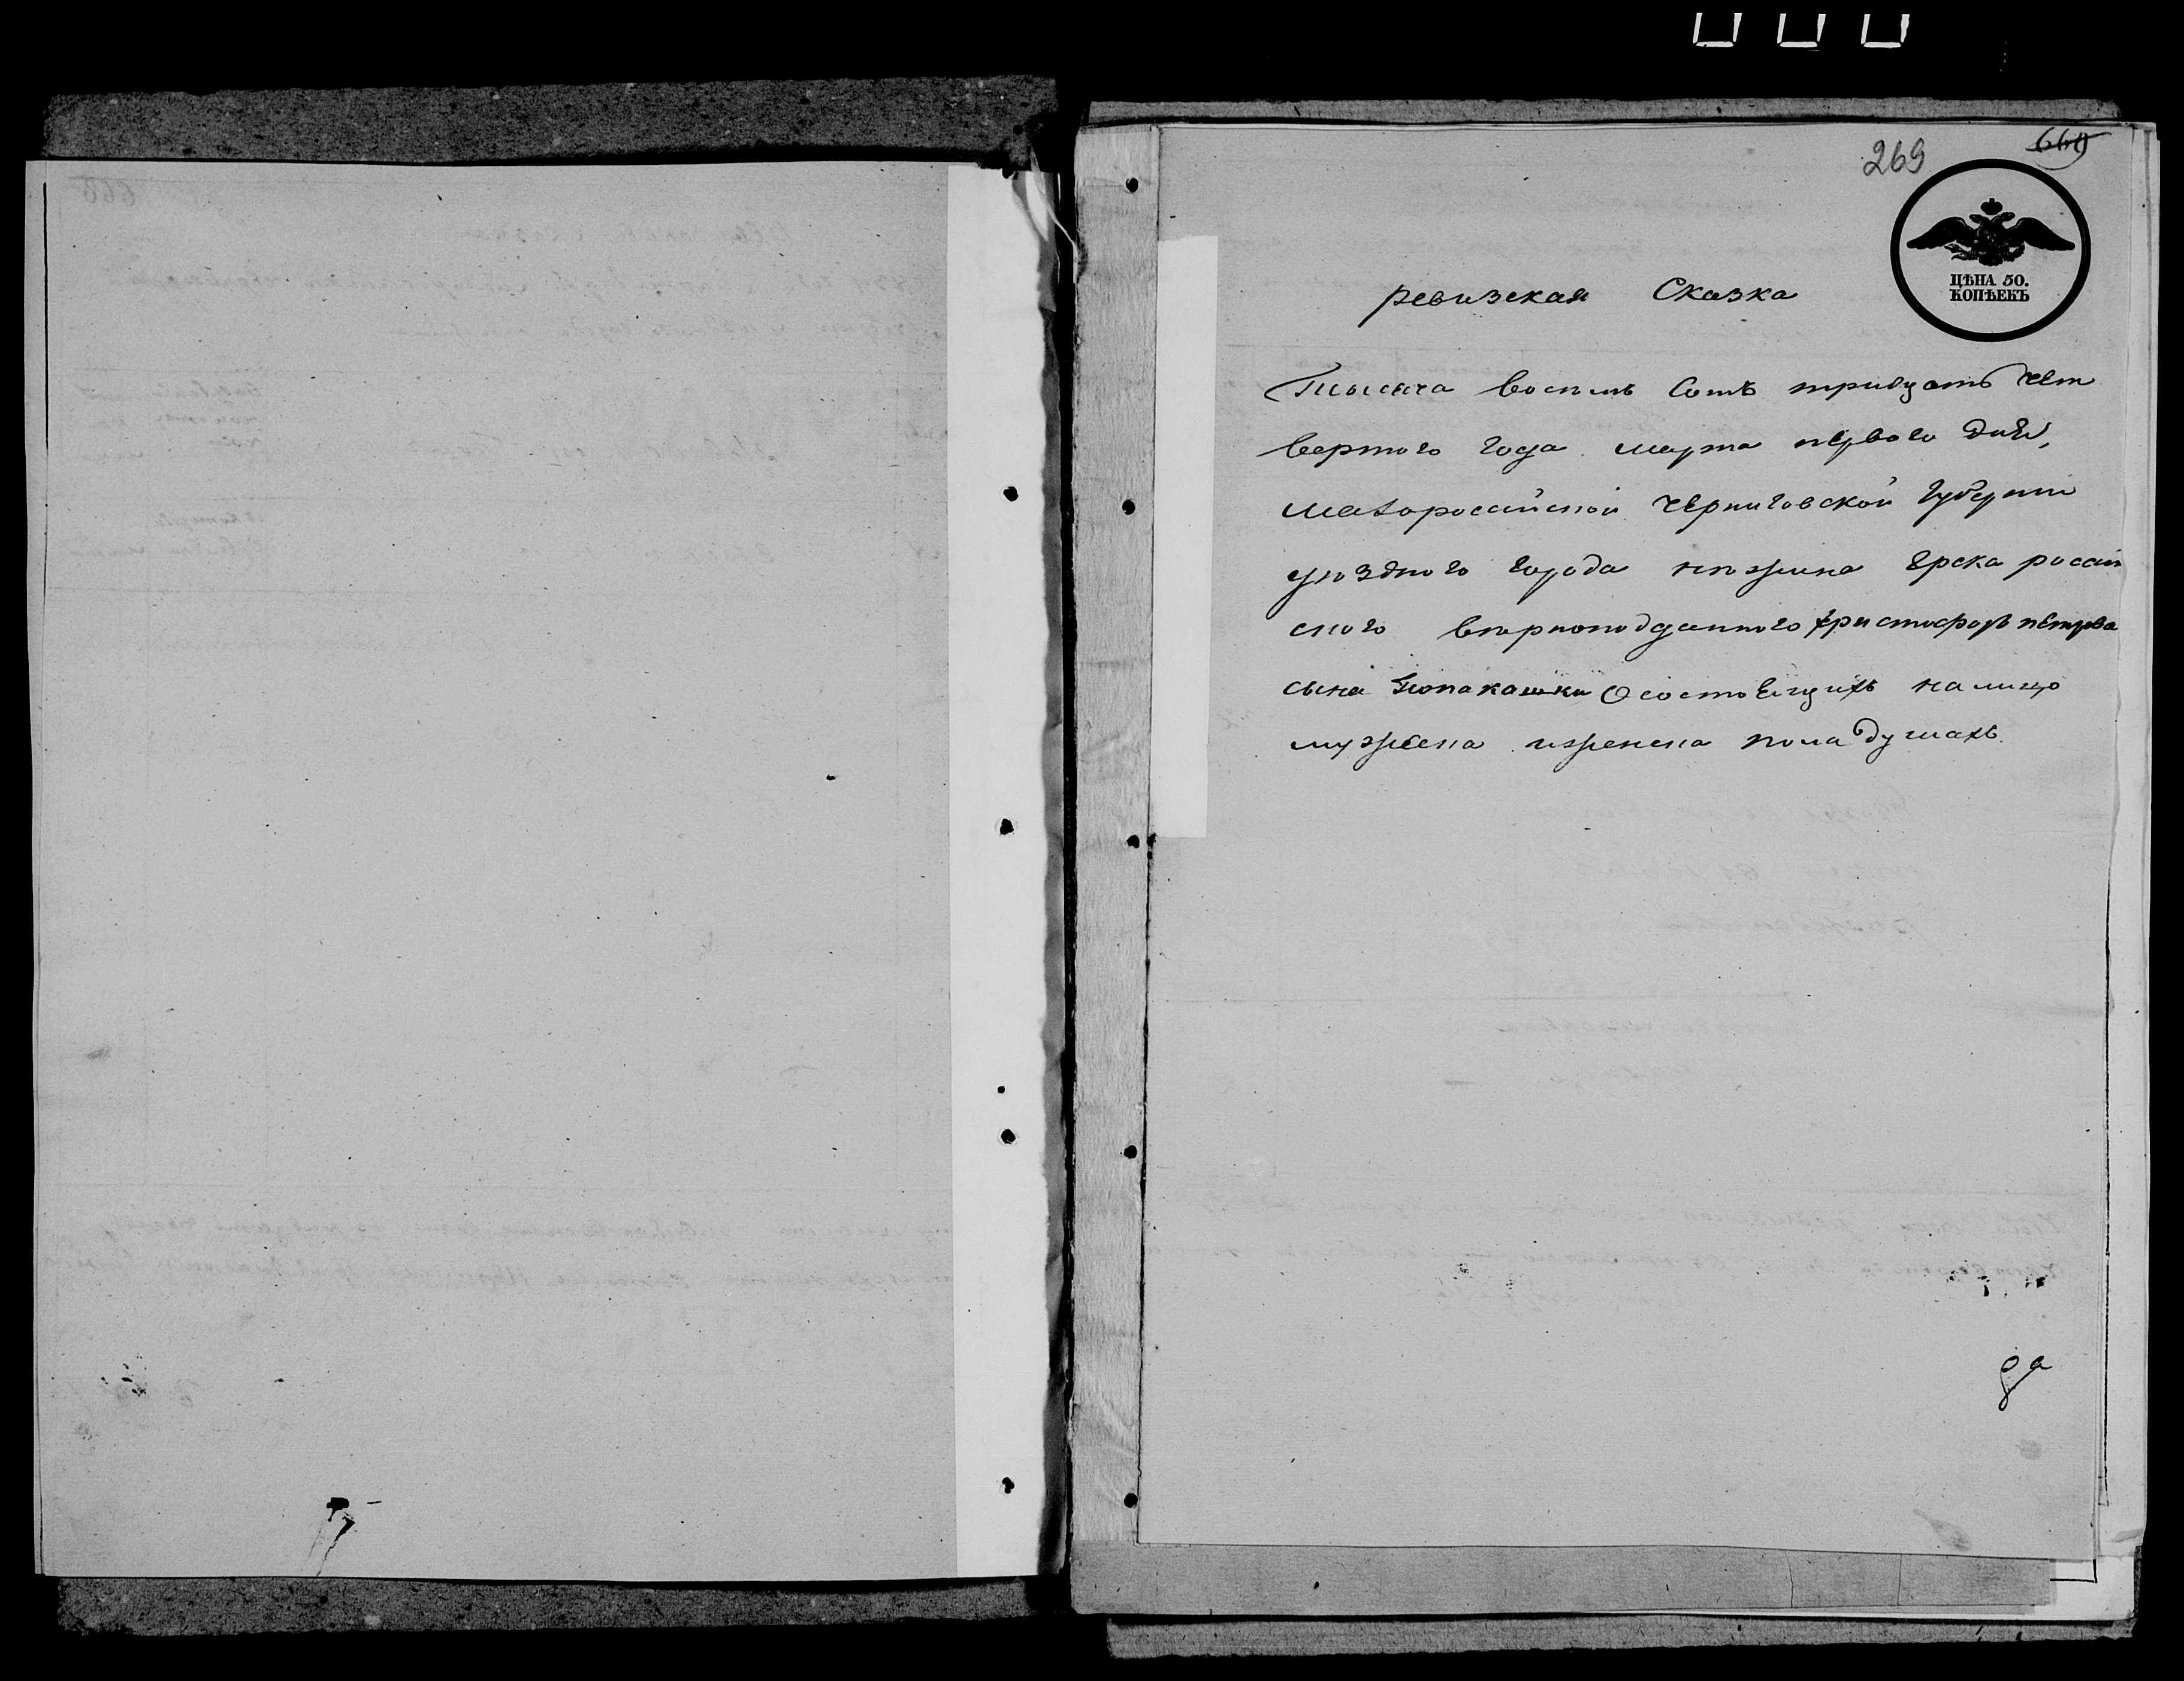 660
269
ЦѢНА 50.
КОПѢЕКЪ
ревизская Сказка
Тысяча восемь Сотъ тридцать чет
вертого года марта первого дня,
малороссійской черниговской губерніи
уѣздного города нѣжина грека россій
ского вѣрноподданного христофора петрова
сына Попакашки О состоещихъ на лицо
мужеска иженска пола душахъ
да